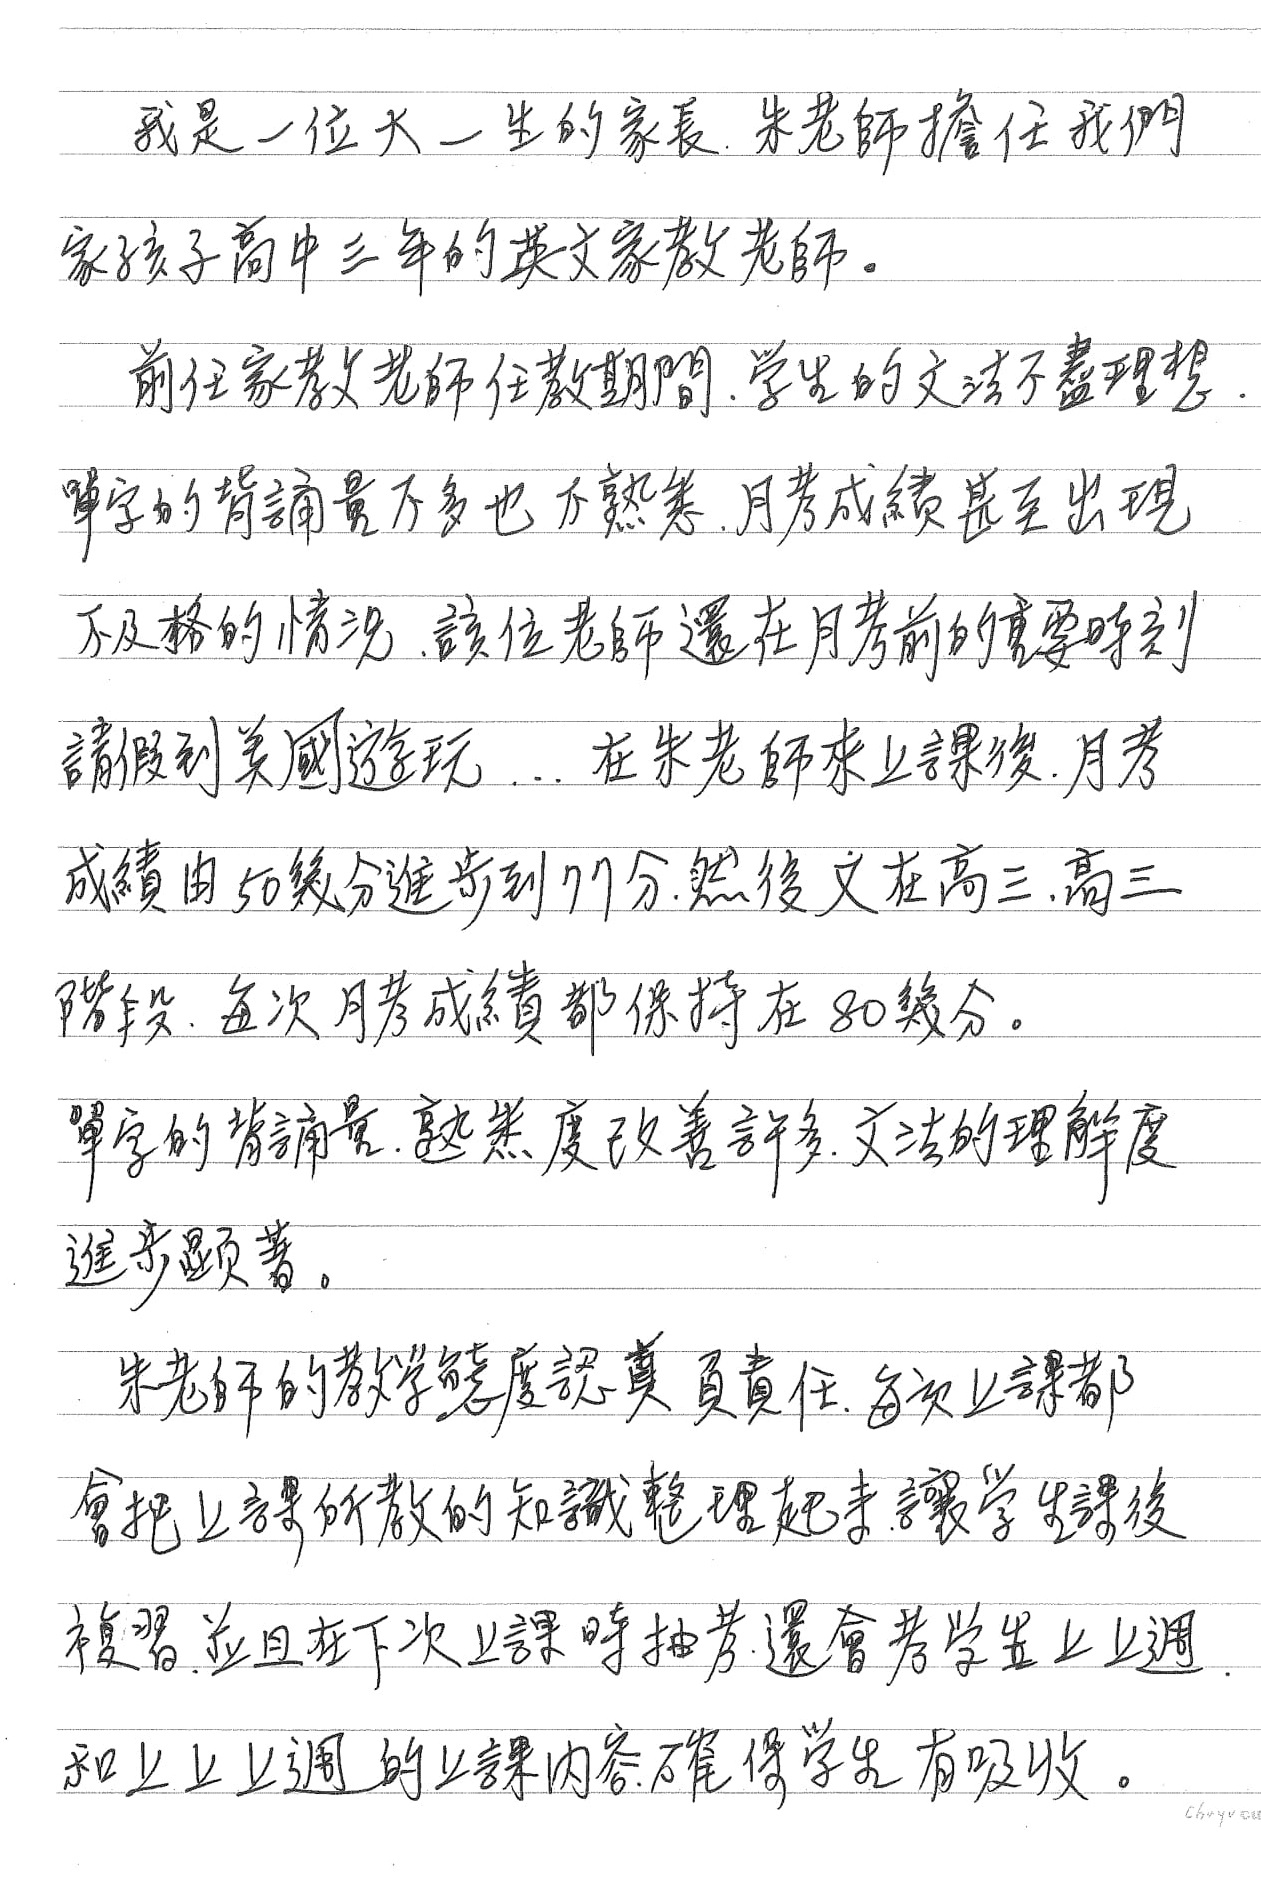 我是一位大一生的家長.朱老師擔任我們
家孩子高中三年的英文家教老師。
前任家教老師任教期間.学生的文法不盡理想.
單字的背誦量不多也不熟悉.月考成績甚至出現
不及格的情況.該位老師還在月考前的重要時刻
請假到美國遊玩...在朱老師來上課後.月考
成績由50幾分進步到77分.然後又在高三、高三
階段.每次月考成績都保持在80幾分。
單字的背誦量.熟悉度改善許多.文法的理解度
進步顯著。
朱老師的教学態度認真負責任.每次上課都
會把上課所教的知識整理起來.讓学生課後
複習.並且在下次上課時抽考.還會考学生上上週.
和上上上週的上課內容.確保学生有吸收。